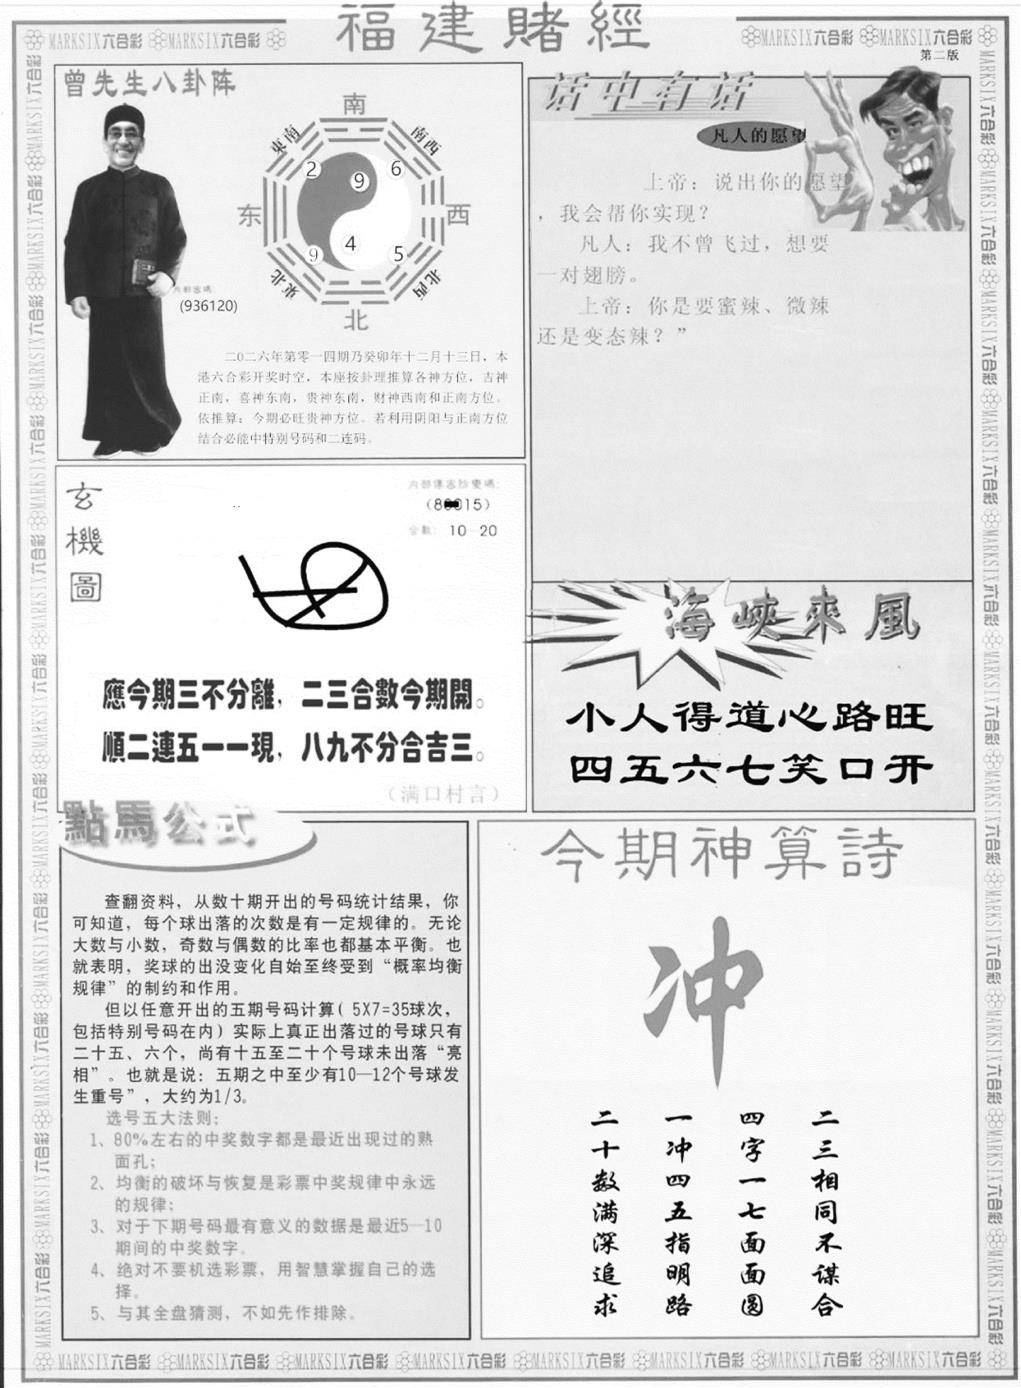 福建賭經
MARKSIX六合彩 MARKSIX六合彩
MARKSIX六合彩 MARKSIX六合彩
第二版
曾先生八卦阵
南
東南
南西
2
9
6
东
西
9
4
5
東北
北西
北
内部密碼
(936120)
二O二六年第零一四期乃癸卯年十二月十三日，本
港六合彩开奖时空，本座按卦理推算各神方位，吉神
正南，喜神东南，贵神东南，财神西南和正南方位。
依推算：今期必旺贵神方位。若利用阴阳与正南方位
结合必能中特别号码和二连码。
话中有话
凡人的愿望
上帝：说出你的愿望
，我会帮你实现？
凡人：我不曾飞过，想要
一对翅膀。
上帝：你是要蜜辣、微辣
还是变态辣？”
玄機圖
10—20
應今期三不分離，二三合數今期開。
順二連五一一現，八九不分合吉三。
（满口村言）
海峽來風
小人得道心路旺
四五六七笑口开
點馬公式
查翻资料，从数十期开出的号码统计结果，你
可知道，每个球出落的次数是有一定规律的。无论
大数与小数，奇数与偶数的比率也都基本平衡。也
就表明，奖球的出没变化自始至终受到“概率均衡
规律”的制约和作用。
但以任意开出的五期号码计算( 5X7=35球次，
包括特别号码在内）实际上真正出落过的号球只有
二十五、六个，尚有十五至二十个号球未出落“亮
相”。也就是说：五期之中至少有10—12个号球发
生重号”，大约为1/3。
选号五大法则：
1、80%左右的中奖数字都是最近出现过的熟
面孔；
2、均衡的破坏与恢复是彩票中奖规律中永远
的规律；
3、对于下期号码最有意义的数据是最近5—10
期间的中奖数字。
4、绝对不要机选彩票，用智慧掌握自己的选
择。
5、与其全盘猜测，不如先作排除。
今期神算詩
冲
二三相同不谋合
四字一七面面圆
一冲四五指明路
二十数满深追求
MARKSIX六合彩 MARKSIX六合彩 MARKSIX六合彩 MARKSIX六合彩 MARKSIX六合彩 MARKSIX六合彩 MARKSIX六合彩 MARKSIX六合彩